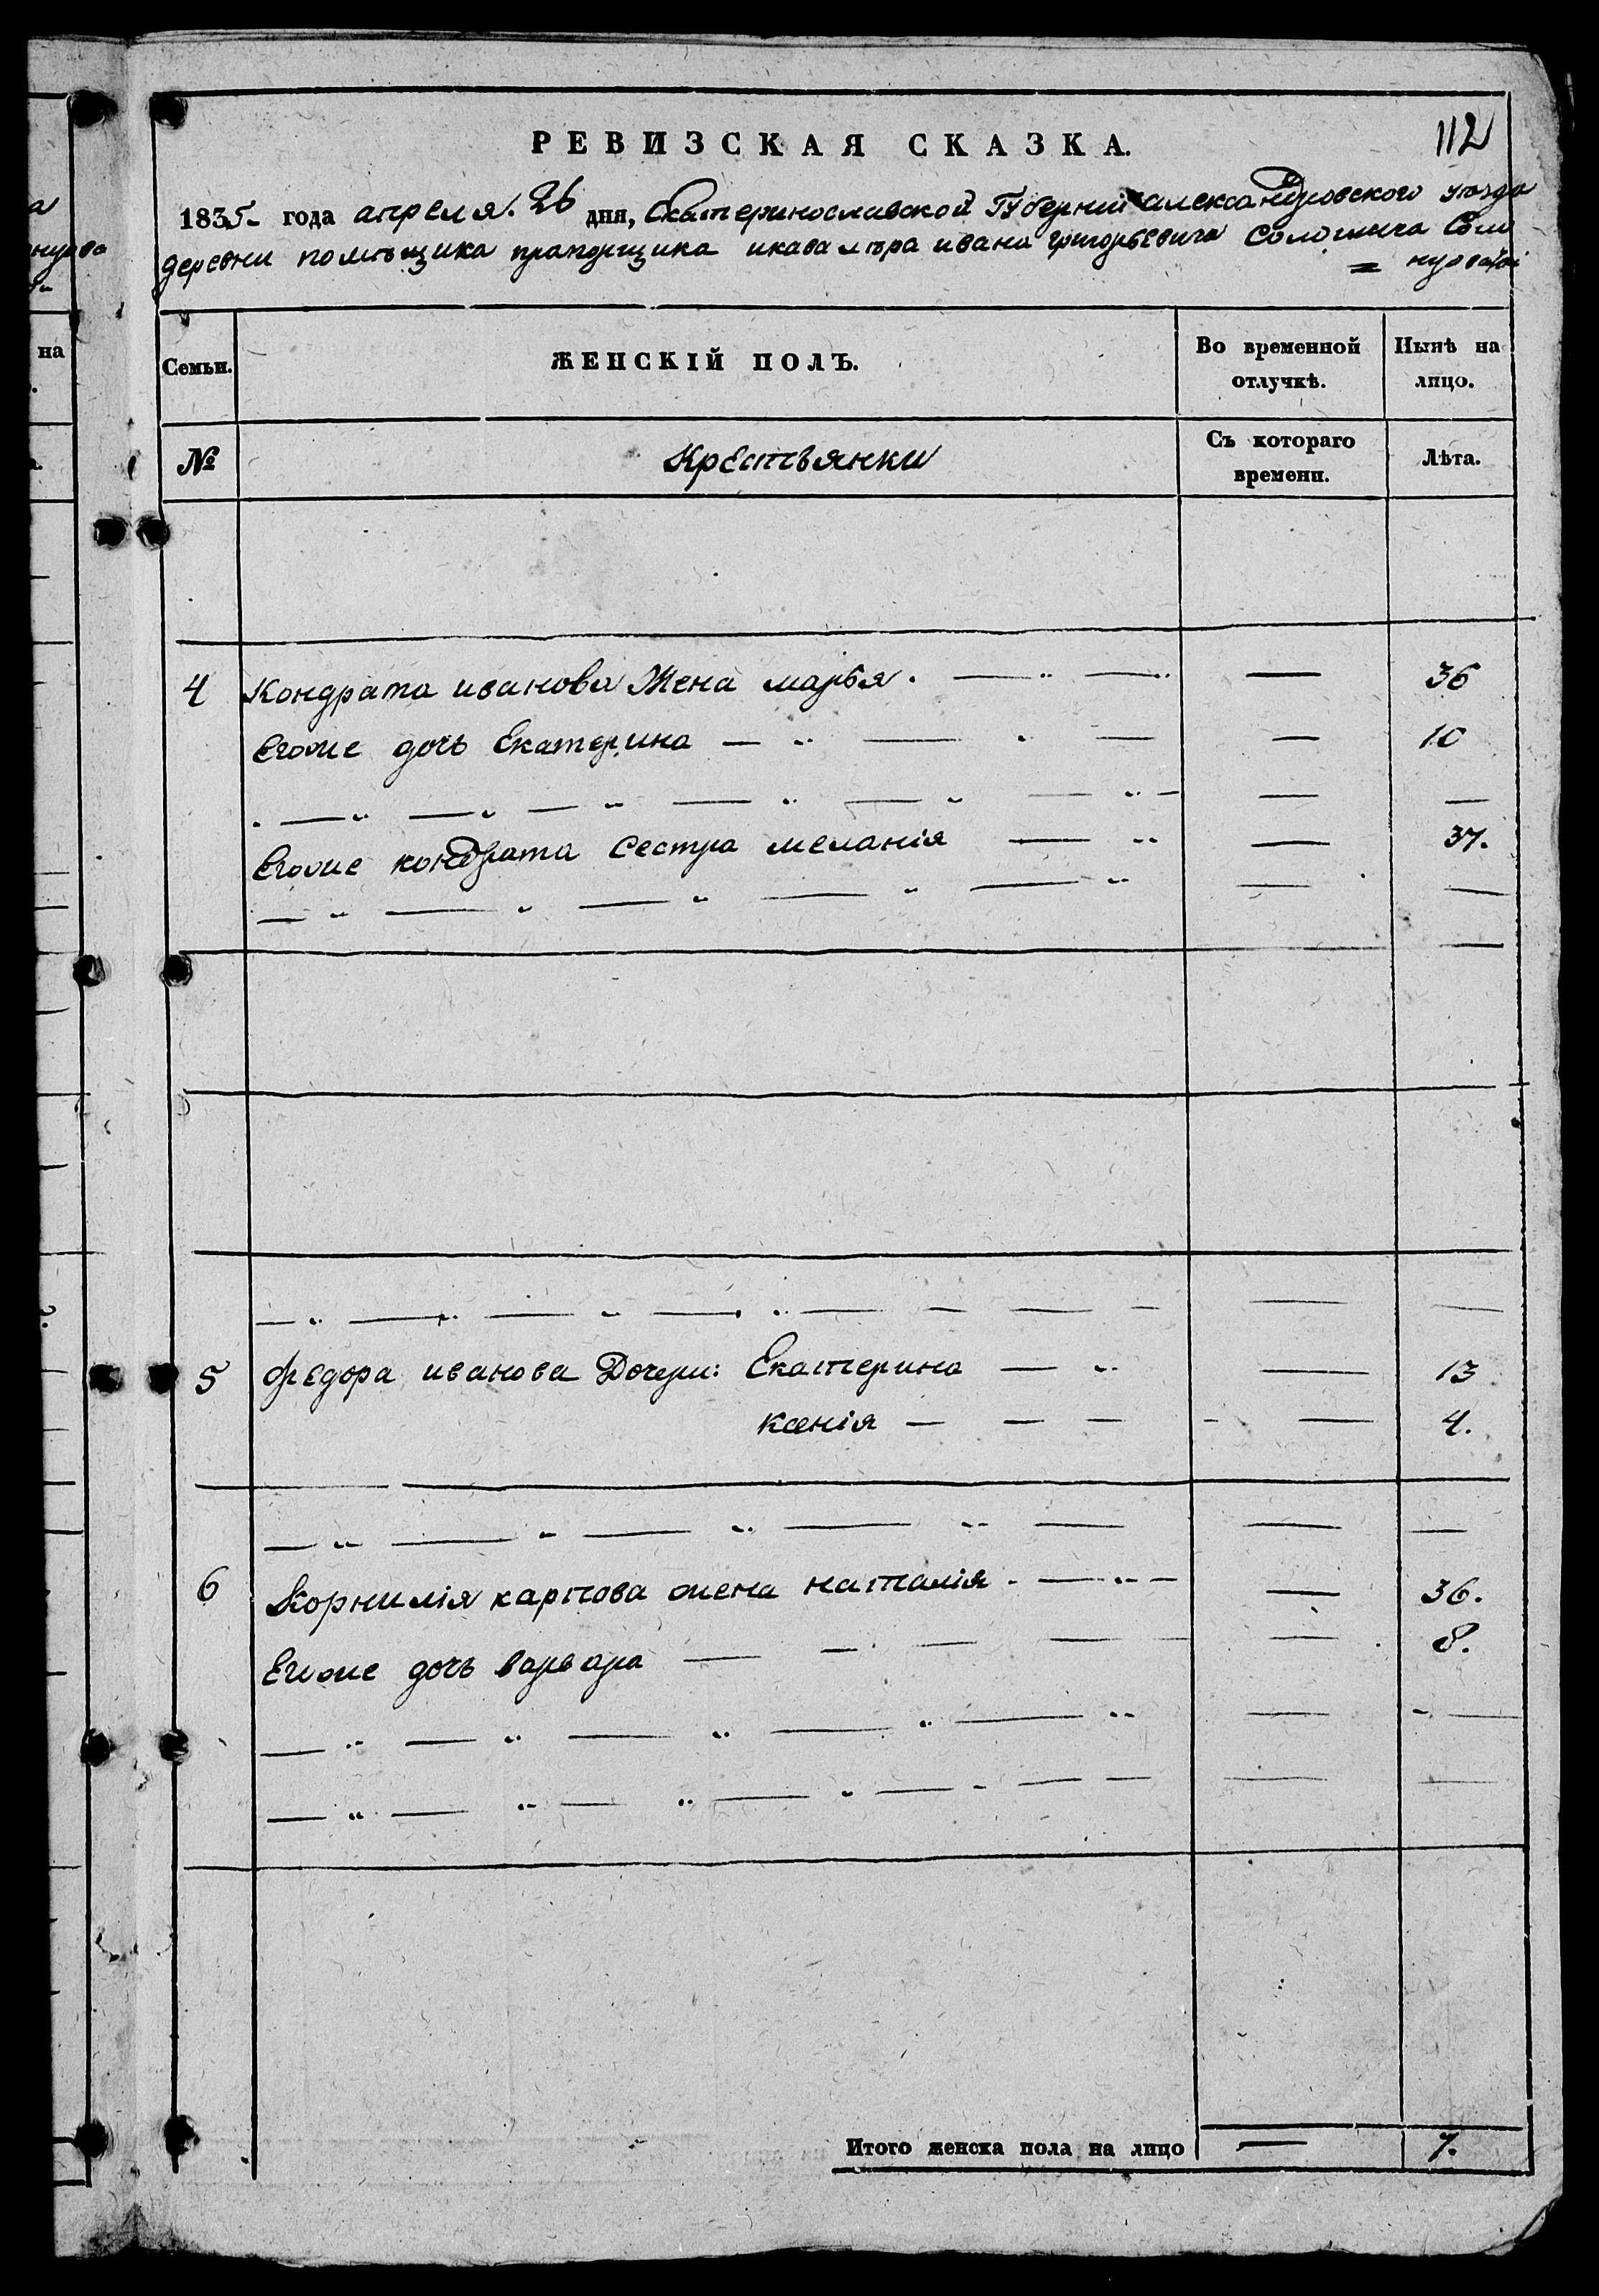 112
РЕВИЗСКАЯ СКАЗКА.
1835 года апреля. 26 дня, Екатеринославской Губернии александровского уезда
деревни помещика прапорщика икавалера ивана григорьевича
Семьи.
ЖЕНСКІЙ ПОЛЪ.
Во временной отлучкѣ.
Нынѣ на лицо.
№
Крестьянки
Съ котораго времени.
Лѣта.
4 Кондрата иванова Жена марья. — — 36
Егоже дочь Екатерина — — 10
Егоже кондрата сестра меланія — — 37.
5 федора иванова Дочери: Екатерина — — 13
ксенія — — 4.
6 Корнилія карпова жена наталія — — 36.
Егоже дочь варвара — — 8.
Итого женска пола на лицо — 7.
на